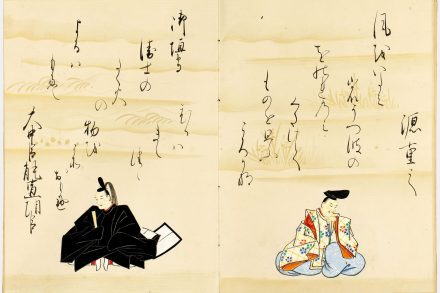 源重之
風をいたみ
岩うつ波の
をのれのみ
くたけて
ものを思ふ
ころかな
御垣
衛士の
たく火の
よるは
もえ
ひるは
物を
大中臣能宣朝臣